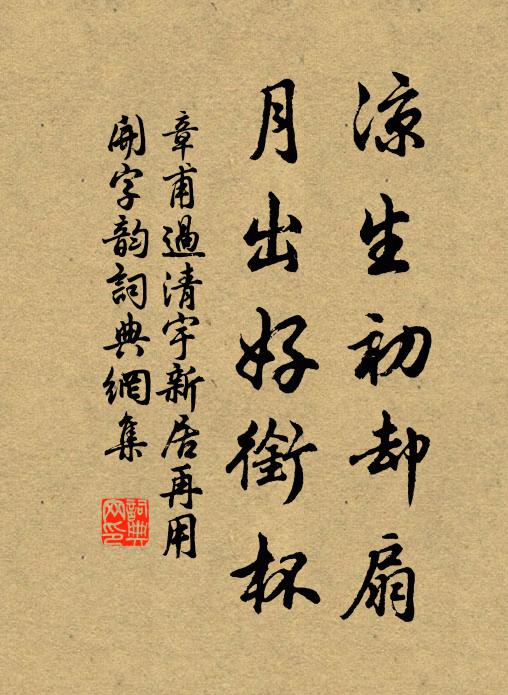 凉生初却扇
月出好銜杯
章甫過清宇新居再用
開字韵詞典網集
詞典网印